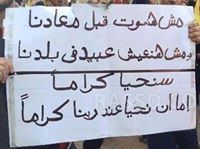 مش هنموت قبل معادنا
ومش هنعيش عبيد فى بلدنا
سنحيا كراماً
إما أن نحيا عند ربنا كراماً